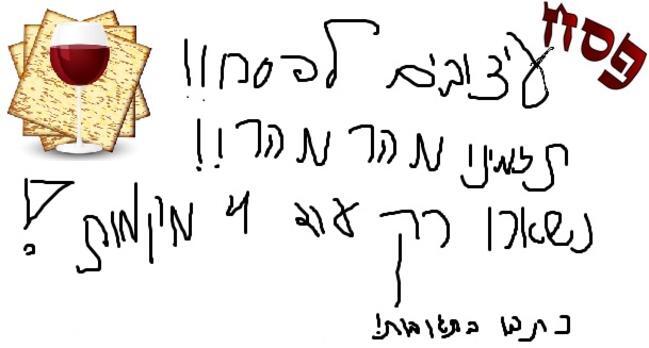 פסח
עיצובים לפסח!!
תזמינו מהר מהר!!
נשארו רק עוד 4 מקומות!
כתבו בתגובות!